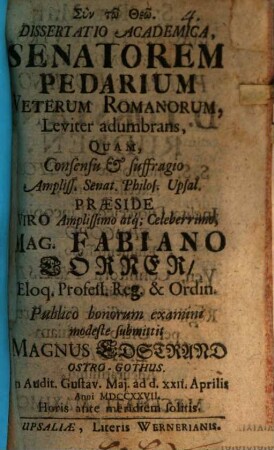 Σὺν τῷ Θεῷ. 4.
DISSERTATIO ACADEMICA,
SENATOREM
PEDARIUM
VETERUM ROMANORUM,
Leviter adumbrans,
QUAM,
Consensu & suffragio
Ampliss. Senat. Philos. Upsal.
PRÆSIDE
VIRO Amplissimo atq; Celeberrimo,
MAG. FABIANO
TÖRNER/
Eloq. Profess. Reg. & Ordin.
Publico bonorum examini
modeste submittit
MAGNUS EDSTRAND
OSTRO-GOTHUS.
In Audit. Gustav. Maj. ad d. XXII. Aprilis
Anni MDCCXXVII.
Horis ante meridiem solitis.
UPSALIÆ, Literis WERNERIANIS.